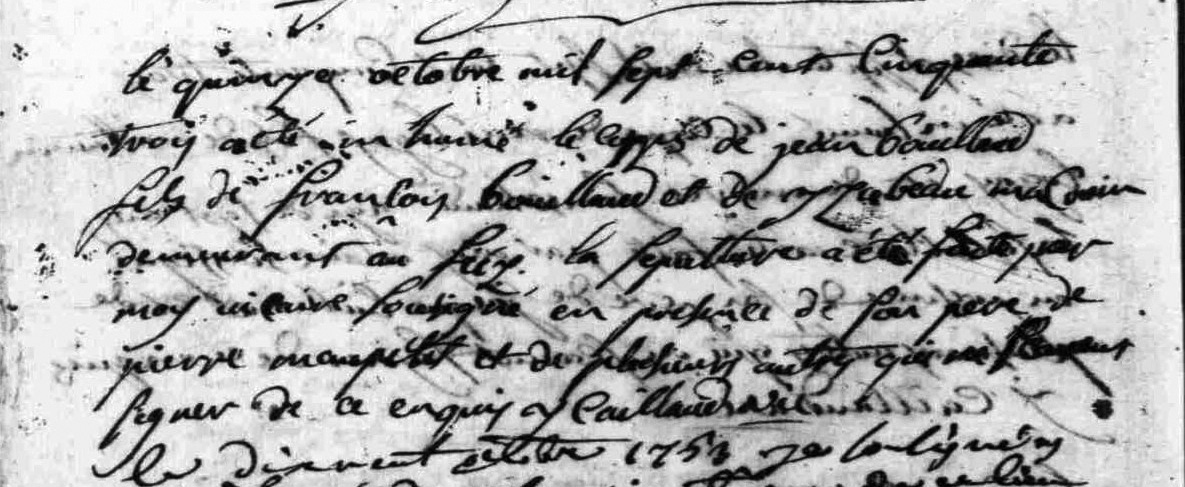 le quinze octobre mil sept cent cinquante
trois a été inhumé le corps de jean bouillaud
fils de francois bouillaud et de yzabeau
demeurant au la sepulture a été faite par
moy vicaire soubsigné en presence de son pere de
pierre maupetit et de plusieurs autres qui ne scavent
signer de ce enquis Caillaud
le octobre 1753 je soussigné